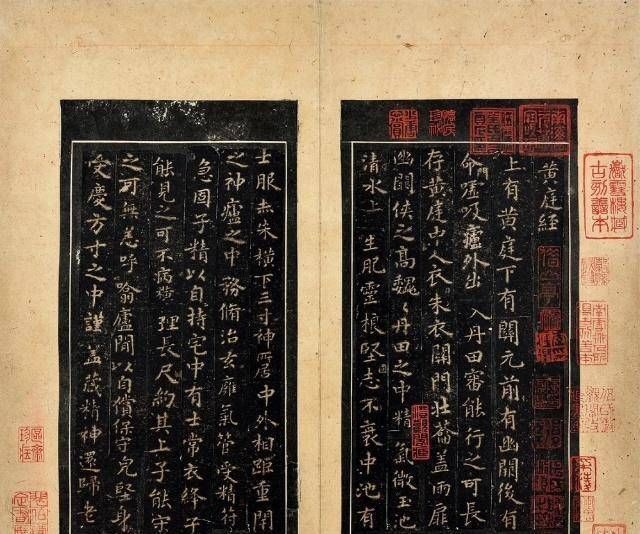 黄庭經
上有黄庭下有關元前有幽闕後有
命門噓吸廬外出入丹田審能行之可長
存黄庭中人衣朱衣關門壯蘥蓋兩扉
幽闕俠之高魏魏丹田之中精氣微玉池
清水上生肥靈根堅志不衰中池有
士服赤朱横下三寸神所居中外相距重閉
之神廬之中務脩治玄膺氣管受精符
急固子精以自持宅中有士常衣絳子
能見之可不病横理長尺約其上子能守
之可無恙呼噏廬間以自償保守完堅身
受慶方寸之中謹蓋藏精神還歸老
古刻善本